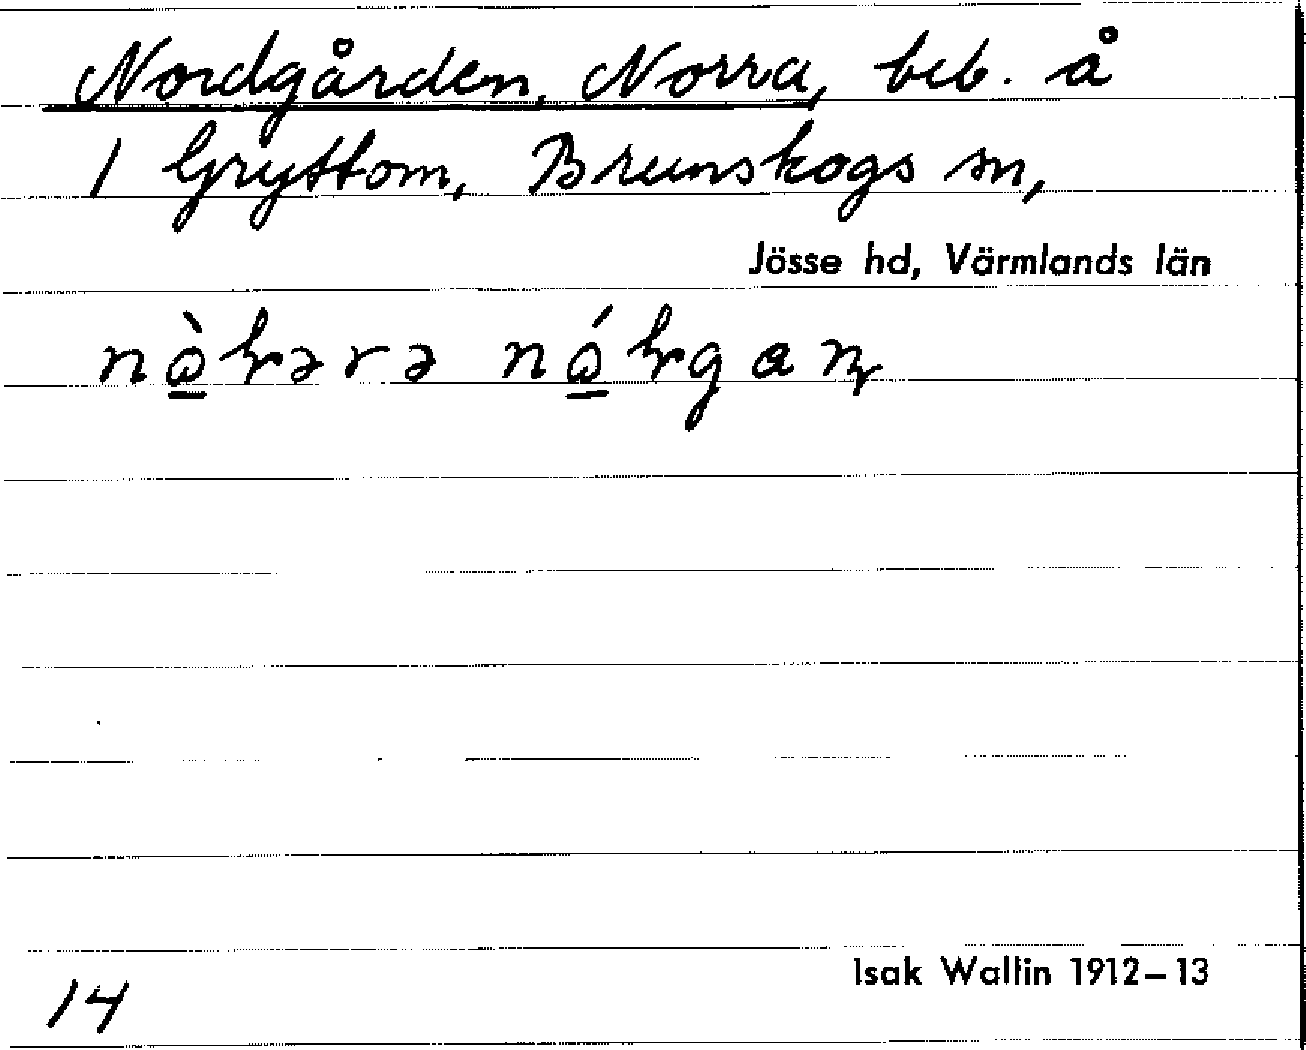 Nordgården, Norra, beb. å
1 Gryttom, Brunskogs sn,
Jösse hd, Värmlands län
14
Isak Wallin 1912–13